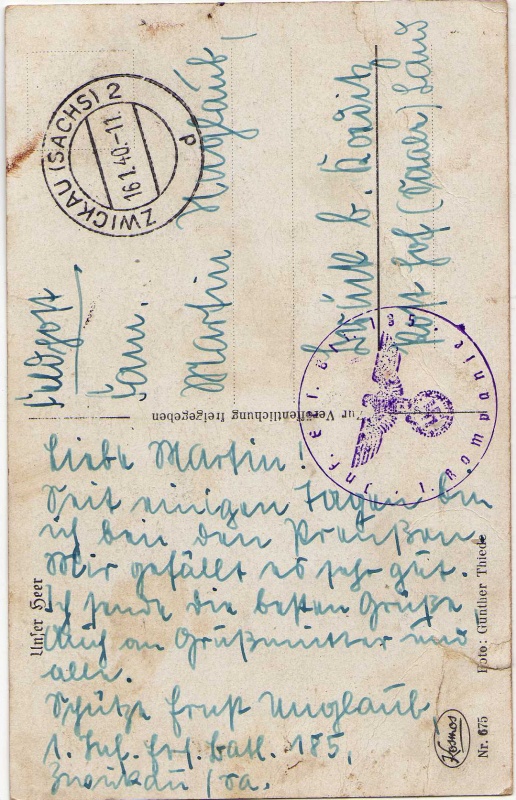 ZWICKAU (SACHS) 2
d
16.1.40.-11
Feldpost
Fam.
Martin Unglaub,
b.
Post Hof (Saale) Land
Inf. Ers. Btl. 185.
1. Kompanie
ur Veröffentlichung freigegeben
Liebe Martin!
Seit einigen Tagen bin
ich bein den Preußen.
Mir gefällt es sehr gut.
Ich sende die besten Grüße
Auch an Großmutter und
alle.
Schütze Ernst Unglaub
1. Inf. Ers. Batl. 185,
Zwickau / Sa.
Unser Heer
Foto: Günther Thiede
Kosmos
Nr. 675